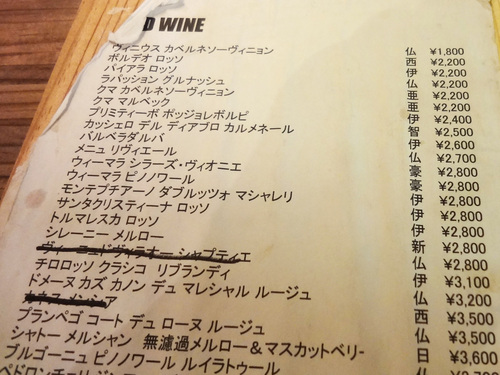 D WINE
ヴィニウス カベルネソーヴィニョン 仏 ¥1,800
ボルデオ ロッソ 西 ¥2,200
バイアラ ロッソ 伊 ¥2,200
ラパッション グルナッシュ 仏 ¥2,200
クマ カベルネソーヴィニョン 亜 ¥2,200
クマ マルベック 亜 ¥2,200
プリミティーボ ポッジョレボルピ 伊 ¥2,400
カッシェロ デル ディアブロ カルメネール 智 ¥2,500
バルベラダルバ 伊 ¥2,600
メニュ リヴィエール 仏 ¥2,700
ウィーマラ シラーズ・ヴィオニエ 豪 ¥2,800
ウィーマラ ピノノワール 豪 ¥2,800
モンテプチアーノ ダブルッツォ マシャレリ 伊 ¥2,800
サンタクリスティーナ ロッソ 伊 ¥2,800
トルマレスカ ロッソ 伊 ¥2,800
シレーニー メルロー 新 ¥2,800
シャプティエ 仏 ¥2,800
チロロッソ クラシコ リブランディ 伊 ¥3,100
ドメーヌ カズ カノン デュ マレシャル ルージュ 仏 ¥3,200
西 ¥3,500
プランペゴ コート デュ ローヌ ルージュ 仏 ¥3,500
シャトー メルシャン 無濾過メルロー&マスカットベリー 日 ¥3,600
ブルゴーニュ ピノノワール ルイラトゥール